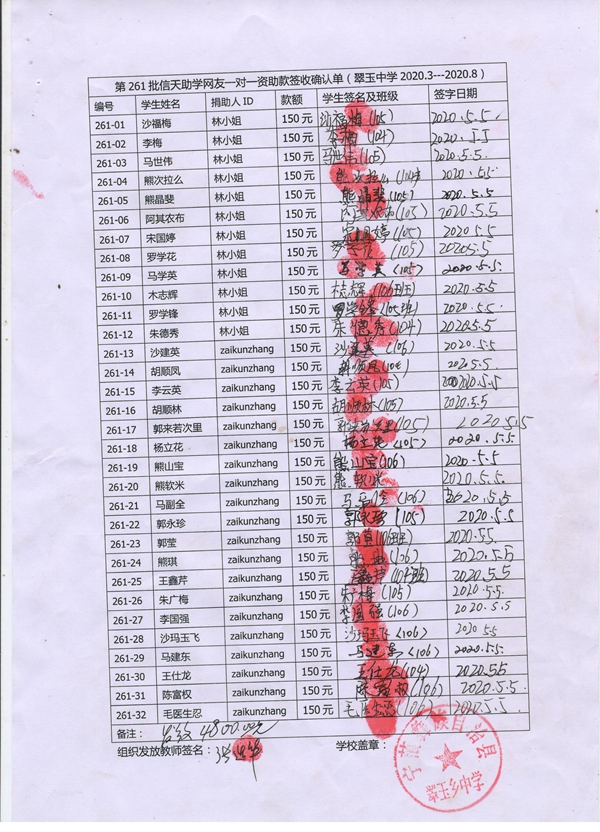 第 261 批信天助学网友一对一资助款签收确认单（翠玉中学 2020.3---2020.8）
编号 学生姓名 捐助人 ID 款额 学生签名及班级 签字日期
261-01 沙福梅 林小姐 150 元 沙福梅(105) 2020.5.5.
261-02 李梅 林小姐 150 元 李梅(104) 2020.5.5
261-03 马世伟 林小姐 150 元 马世伟(105) 2020.5.5.
261-04 熊次拉么 林小姐 150 元 熊次拉么(104) 2020.5.5
261-05 熊晶斐 林小姐 150 元 熊晶斐(105) 2020.5.5
261-06 阿其农布 林小姐 150 元 (105) 2020.5.5
261-07 宋国婷 林小姐 150 元 宋国婷(105) 2020.5.5
261-08 罗学花 林小姐 150 元 罗学花(105) 2020.5.5
261-09 马学英 林小姐 150 元 马学英(105) 2020.5.5.
261-10 木志辉 林小姐 150 元 木志辉(106班) 2020.5.5
261-11 罗学锋 林小姐 150 元 罗学锋(105班) 2020.5.5
261-12 朱德秀 林小姐 150 元 朱德秀(104) 2020.5.5
261-13 沙建英 zaikunzhang 150 元 沙建英(106) 2020.5.5
261-14 胡顺凤 zaikunzhang 150 元 胡顺凤 2020.5.5
261-15 李云英 zaikunzhang 150 元 李云英(105) 2020.5.5
261-16 胡顺林 zaikunzhang 150 元 胡顺林(105) 2020.5.5
261-17 郭来若次里 zaikunzhang 150 元 (105) 2020.5.5
261-18 杨立花 zaikunzhang 150 元 杨立花(105) 2020.5.5
261-19 熊山宝 zaikunzhang 150 元 熊山宝(106) 2020.5.5
261-20 熊软米 zaikunzhang 150 元 熊软米 2020.5.5
261-21 马副全 zaikunzhang 150 元 马副全(106) 2020.5.5
261-22 郭永珍 zaikunzhang 150 元 郭永珍(105) 2020.5.5
261-23 郭莹 zaikunzhang 150 元 郭莹(106班) 2020.5.5.
261-24 熊琪 zaikunzhang 150 元 熊琪(106) 2020.5.5
261-25 王鑫芹 zaikunzhang 150 元 王鑫芹 2020.5.5
261-26 朱广梅 zaikunzhang 150 元 (105) 2020.5.5.
261-27 李国强 zaikunzhang 150 元 李国强(106) 2020.5.5
261-28 沙玛玉飞 zaikunzhang 150 元 沙玛玉飞(106) 2020 5.5
261-29 马建东 zaikunzhang 150 元 马建东(106) 2020.5.5.
261-30 王仕龙 zaikunzhang 150 元 王仕龙(104) 2020.5.5
261-31 陈富权 zaikunzhang 150 元 陈富权(106) 2020.5.5.
261-32 毛医生忍 zaikunzhang 150 元 毛医生忍(106) 2020.5.5
备注： 4800.00元
组织发放教师签名： 学校盖章：
宁蒗彝族自治县
翠玉乡中学